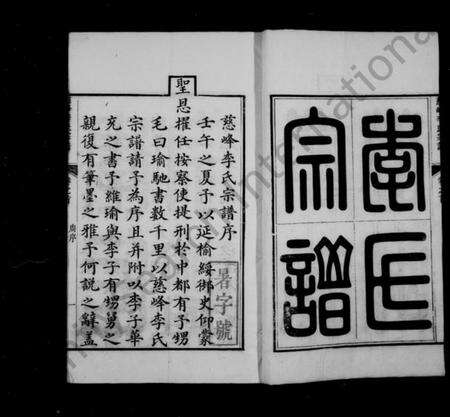 李氏
宗譜
慈峰李氏宗譜序
壬午之夏予以延榆綏御史仰蒙
聖恩擢任按察使提刑於中都有子甥
毛曰瑜馳書數千里以慈峰李氏
宗譜請予為序且并附以李子華
充之書予維瑜與李子有甥舅之
親復有筆墨之雅予何說之辭蓋
暑字號